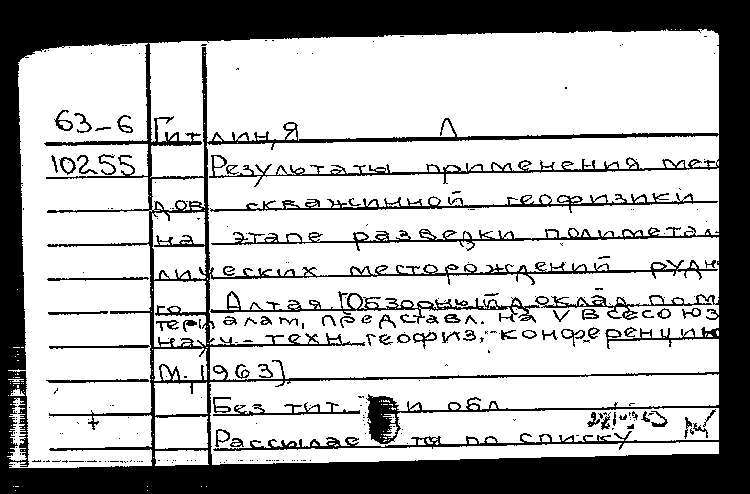 63-6 Гитлин, Я Л
10255 Результаты применения мето
дов скважинной геофизики
на этапе разведки полиметал-
лических месторождений рудн
го Алтая. [Обзорный доклад по ма
териалам, представл. на V Всесоюз
науч.-техн. геофиз. конференцию
М., 1963].
Без тит. л. и обл.
Рассылае тся по списку